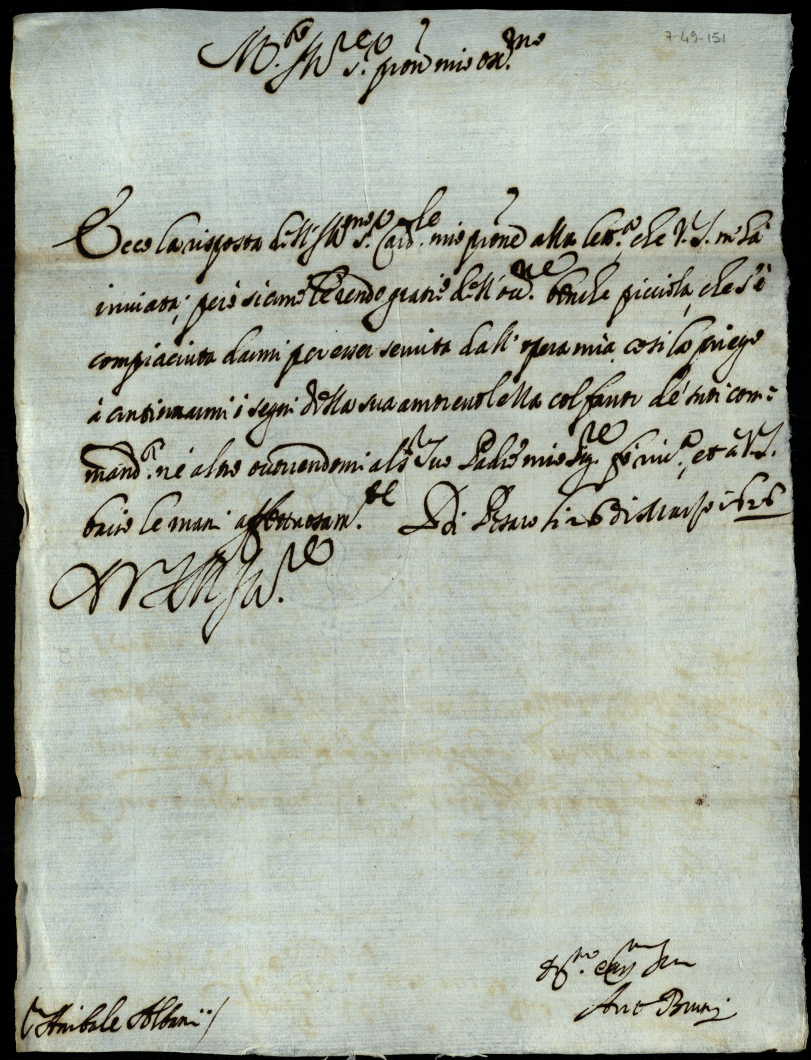 7-49-151
M.to Ill.re s.r e pron mio oss.mo
Ecco la risposta dell'Ill.mo s.r Card.le mio prone alla lett.a che V.S. m'ha
inviata; però sicome le rendo gratie dell'occ.ne benche picciola, che s'è
compiaciuta darmi per esser servita dall'opera mia, cosi la priego
à continuarmi i segni della sua amorevolezza col favor de' suoi com=
mand.i nè altro occorrendomi al s.r suo Padre mio Sig.re et à V.S.
bacio le mani affettuosam.te Di Pesaro li 26 di Marzo 1626
Di V.S. M. Ill.re
Aff.mo
Ant.o Bruni
Anibale Albani